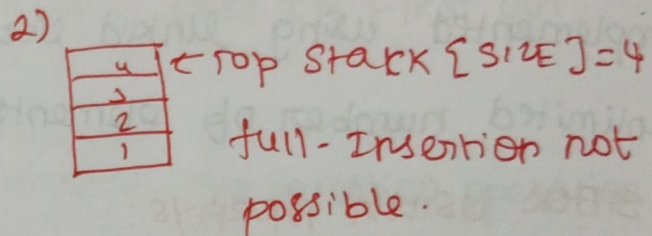 2)
4 ← Top Stack [SIZE] = 4
3
2 full - Insertion not
1
possible.